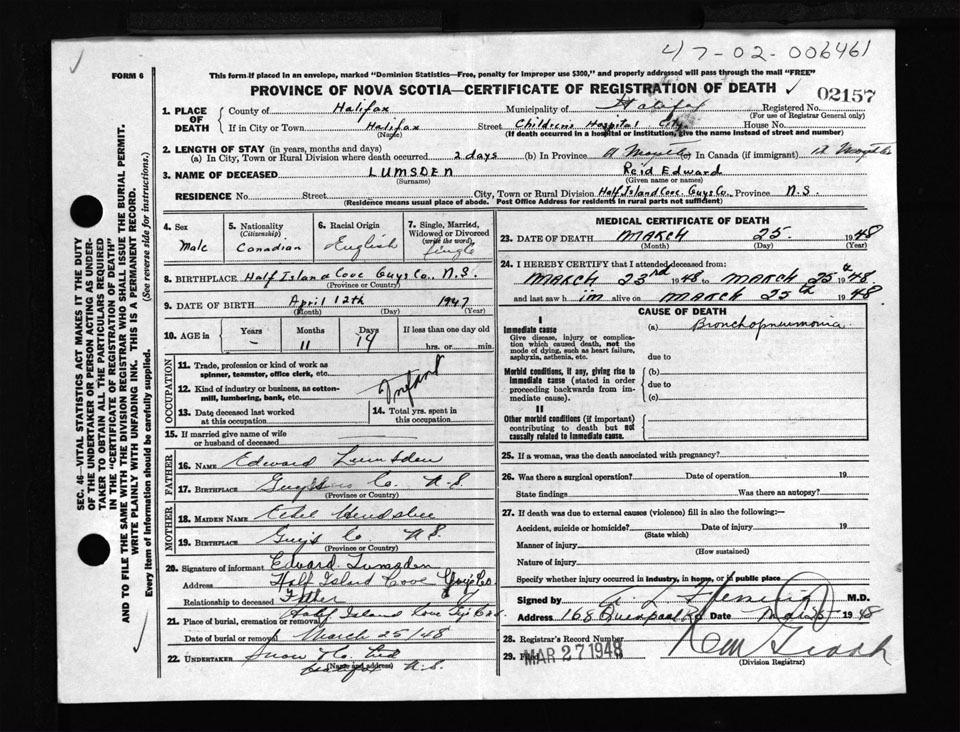 47-02-006461
FORM 6
This form if placed in an envelope, marked "Dominion Statistics—Free, penalty for improper use $300," and properly addressed will pass through the mail "FREE"
PROVINCE OF NOVA SCOTIA—CERTIFICATE OF REGISTRATION OF DEATH
02157
1. PLACE OF DEATH
County of Halifax Municipality of Halifax Registered No.
(For use of Registrar General only)
If in City or Town Halifax Street Children's Hospital City. House No.
(Name) (If death occurred in a hospital or institution, give the name instead of street and number)
2. LENGTH OF STAY (in years, months and days)
(a) In City, Town or Rural Division where death occurred 2 days (b) In Province 11 Months (c) In Canada (if immigrant)
3. NAME OF DECEASED LUMSDEN Reid Edward
(Surname) (Given name or names)
RESIDENCE No. Street City, Town or Rural Division Half Island Cove. Guys Co., Province N.S.
(Residence means usual place of abode. Post Office Address for residents in rural parts not sufficient)
4. Sex Male
5. Nationality (Citizenship) Canadian
6. Racial Origin English
7. Single, Married, Widowed or Divorced (write the word) Single
8. BIRTHPLACE Half Island Cove Guys Co., N.S.
(Province or Country)
9. DATE OF BIRTH April 12th 1947
(Month) (Day) (Year)
10. AGE in Years - Months 11 Days 14 If less than one day old hrs. or min.
OCCUPATION
11. Trade, profession or kind of work as spinner, teamster, office clerk, etc.
12. Kind of industry or business, as cotton-mill, lumbering, bank, etc.
Infant
13. Date deceased last worked at this occupation
14. Total yrs. spent in this occupation
15. If married give name of wife or husband of deceased
FATHER
16. NAME Edward Lumsden
17. BIRTHPLACE Guys Co. N.S
(Province or Country)
MOTHER
18. MAIDEN NAME Ethel Hendsbee
19. BIRTHPLACE Guys Co. N.S.
(Province or Country)
20. Signature of informant Edward Lumsden
Address Half Island Cove Guys Co.
Relationship to deceased Father
21. Place of burial, cremation or removal Half Island Cove
Date of burial or removal March 25/48
22. UNDERTAKER Snow & Co. Ltd
(Name and address) Halifax N.S.
MEDICAL CERTIFICATE OF DEATH
23. DATE OF DEATH MARCH 25. 1948
(Month) (Day) (Year)
24. I HEREBY CERTIFY that I attended deceased from:
MARCH 23rd 1948 to MARCH 25th 1948
and last saw him alive on MARCH 25th 1948.
CAUSE OF DEATH
I
Immediate cause
Give disease, injury or complication which caused death, not the mode of dying, such as heart failure, asphyxia, asthenia, etc.
(a) Bronchopneumonia
due to
Morbid conditions, if any, giving rise to immediate cause (stated in order proceeding backwards from immediate cause).
(b)
due to
(c)
II
Other morbid conditions (if important) contributing to death but not causally related to immediate cause.
25. If a woman, was the death associated with pregnancy?
26. Was there a surgical operation? Date of operation 19
State findings Was there an autopsy?
27. If death was due to external causes (violence) fill in also the following:—
Accident, suicide or homicide? Date of injury 19
(State which)
Manner of injury
(How sustained)
Nature of injury
Specify whether injury occurred in industry, in home, or in public place
Signed by M.D.
Address 168 Quinpool Rd Date Mar 25 1948
28. Registrar's Record Number
29. Filed MAR 27 1948
(Division Registrar)
SEC. 46—VITAL STATISTICS ACT MAKES IT THE DUTY
OF THE UNDERTAKER OR PERSON ACTING AS UNDER-
TAKER TO OBTAIN ALL THE PARTICULARS REQUIRED
IN THE "CERTIFICATE OF REGISTRATION OF DEATH"
AND TO FILE THE SAME WITH THE DIVISION REGISTRAR WHO SHALL ISSUE THE BURIAL PERMIT.
WRITE PLAINLY WITH UNFADING INK. THIS IS A PERMANENT RECORD.
Every item of information should be carefully supplied. (See reverse side for instructions.)